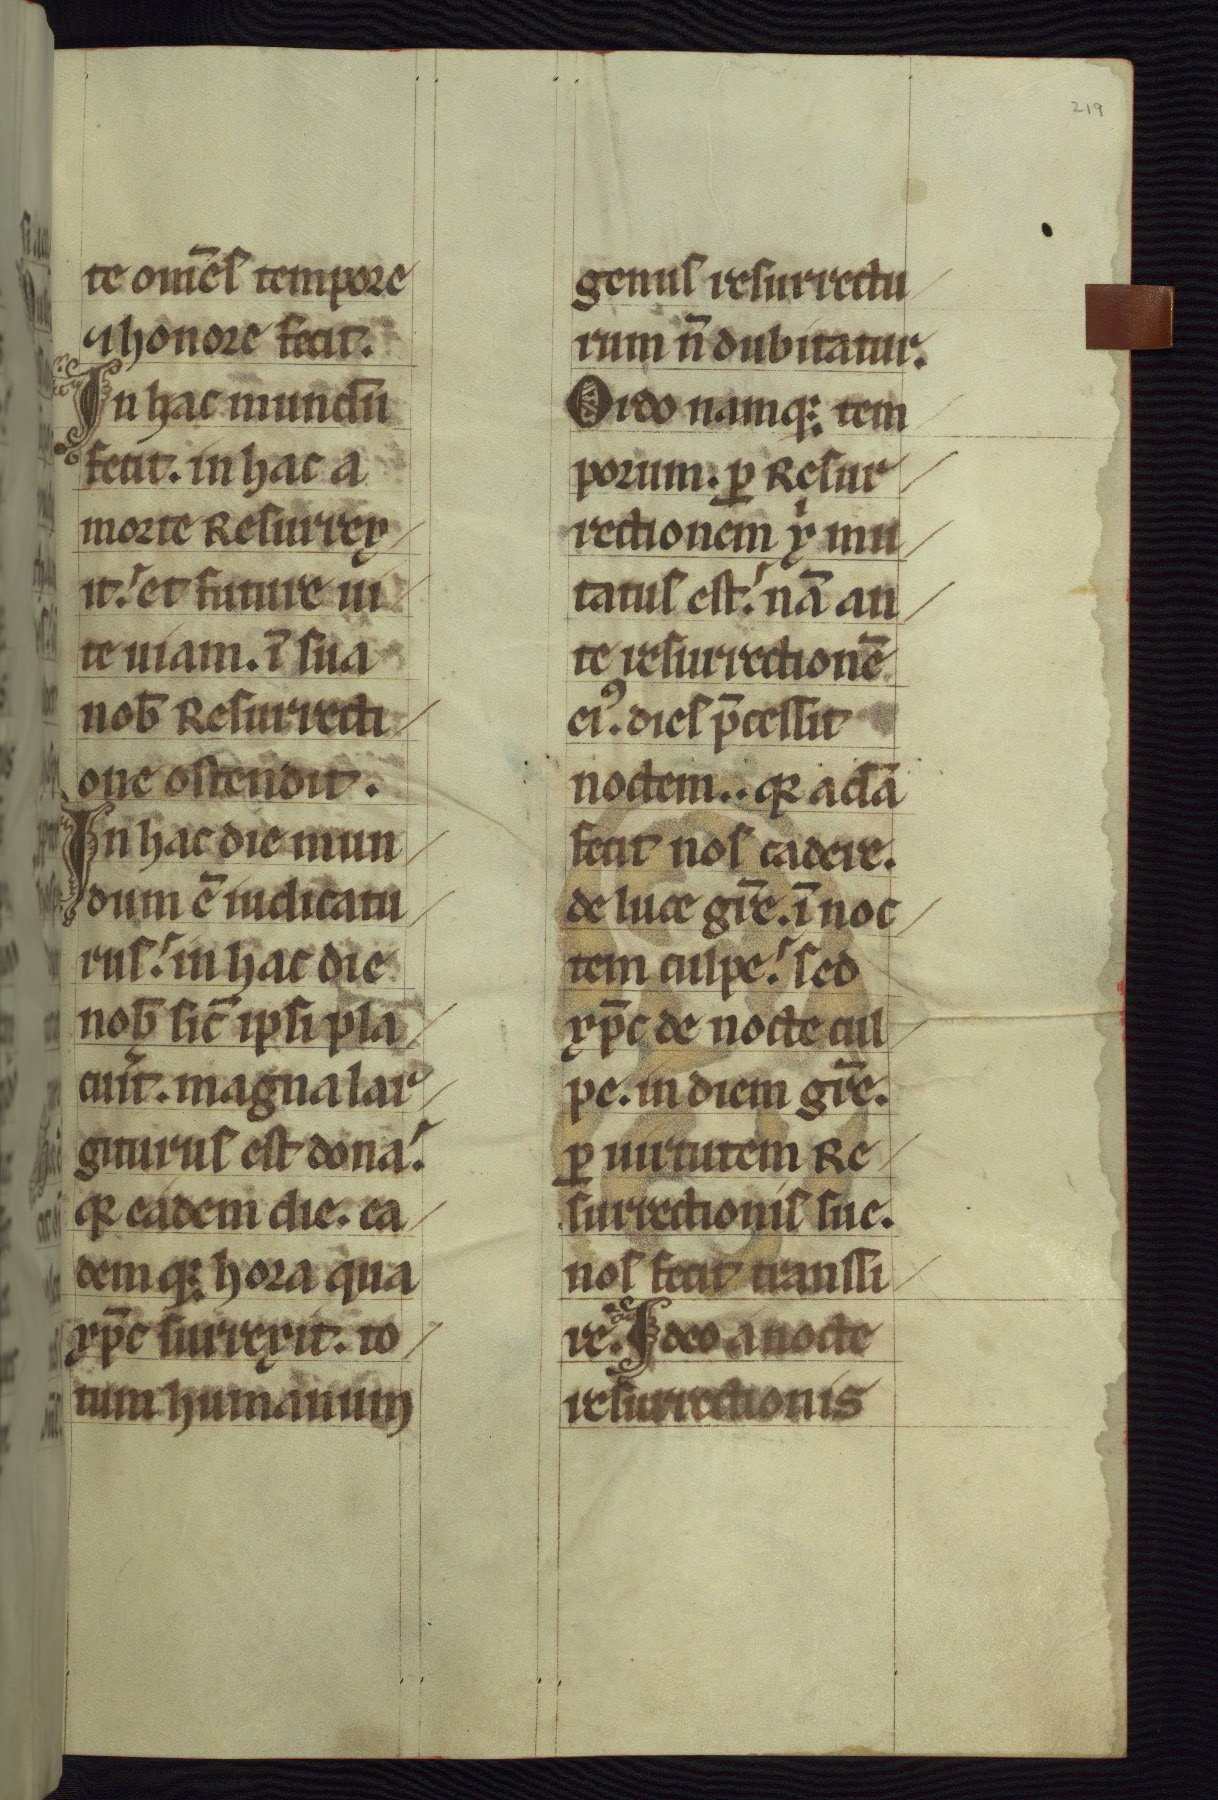 219
te om̅es tempore
⁊ honore fecit.
In hac mundu̅
fecit. in hac a
morte Resurrex
it. et future ui
te uiam. i̅ sua
nob̅ Resurrecti
one ostendit.
In hac die mun
dum e̅ iudicatu
rus. in hac die
nob̅ sic̅ ipsi pla
cu̅it. magna lar
giturus est dona.
qꝛ eadem die. ea
demq; hora qua
xp̅c surrexit. to
tum humanum
genus resurrectu
rum n̅ dubitatur.
Ordo namq; tem
porum. ꝑ Resur
rectionem x̍ mu
tatus est. na̅ an
te resurrectione̅
eiꝰ. dies p̅cessit
noctem.. qꝛ ada̅
fecit nos cadere.
de luce gr̅e. i̅ noc
tem culpe. sed
xp̅c de nocte cul
pe. in diem gr̅e.
ꝑ uirtutem Re
surrectionis sue.
nos fecit transsi
re. Ideo a nocte
resurrectionis